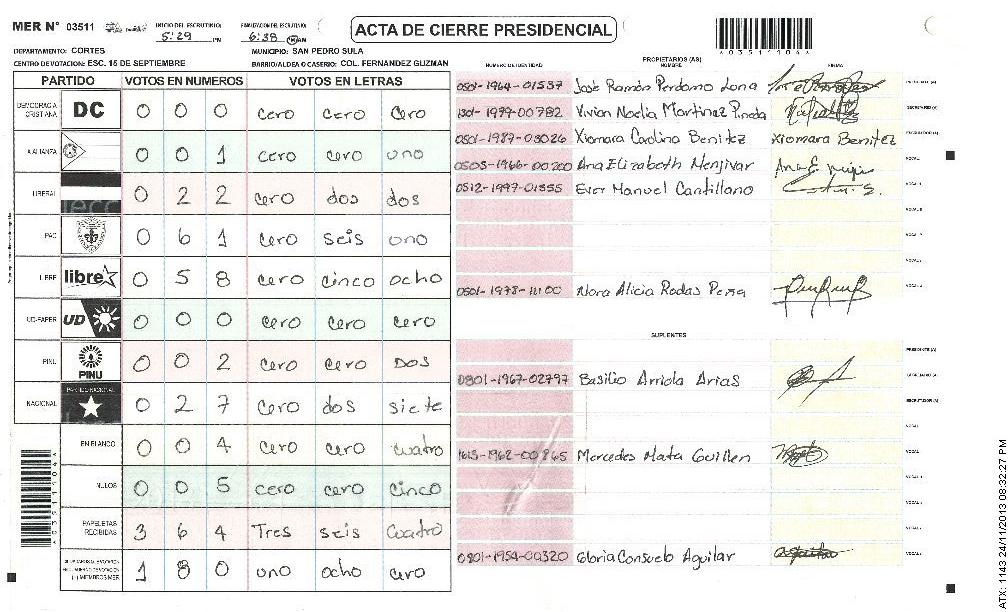 MER N° 03511
INICIO DEL ESCRUTINIO: 5:29 PM
FINALIZACION DEL ESCRUTINIO: 6:38 PM
ACTA DE CIERRE PRESIDENCIAL
A0351104A
DEPARTAMENTO: CORTES
MUNICIPIO: SAN PEDRO SULA
CENTRO DE VOTACION: ESC. 15 DE SEPTIEMBRE
BARRIO/ALDEA O CASERIO: COL. FERNANDEZ GUZMAN
PARTIDO VOTOS EN NUMEROS VOTOS EN LETRAS
DEMOCRACIA CRISTIANA DC 0 0 0 cero cero cero
ALIANZA 0 0 1 cero cero uno
LIBERAL 0 2 2 cero dos dos
PAC 0 6 1 cero seis uno
LIBRE libre 0 5 8 cero cinco ocho
UD-FAPER UD 0 0 0 cero cero cero
PINU PINU 0 0 2 cero cero DOS
NACIONAL PARTIDO NACIONAL 0 2 7 cero dos siete
EN BLANCO 0 0 4 cero cero cuatro
NULOS 0 0 5 cero cero cinco
PAPELETAS RECIBIDAS 3 6 4 Tres seis cuatro
1 8 0 uno ocho cero
A0351104A
PROPIETARIOS (AS)
NUMERO DE IDENTIDAD NOMBRE FIRMA
0501-1964-01537 José Ramón Perdomo Lona PRESIDENTE (A)
1301-1999-00782 Vivian Noelia Martinez Pineda SECRETARIO (A)
0501-1987-03026 Xiomara Carolina Benitez Xiomara Benitez ESCRUTADOR (A)
0505-1966-00200 Ana Elizabeth Menjivar VOCAL
0512-1997-01555 Ever Manuel Cantillano VOCAL
0501-1978-11100 Nora Alicia Rodas Pena VOCAL
SUPLENTES
PRESIDENTE (A)
0801-1967-02797 Basilio Arriola Arias SECRETARIO (A)
ESCRUTADOR (A)
VOCAL
1613-1962-00865 Mercedes Mata Guillen VOCAL
0801-1954-00320 Gloria Consuelo Aguilar VOCAL
ATX: 1143 24/11/2013 08:32:27 PM